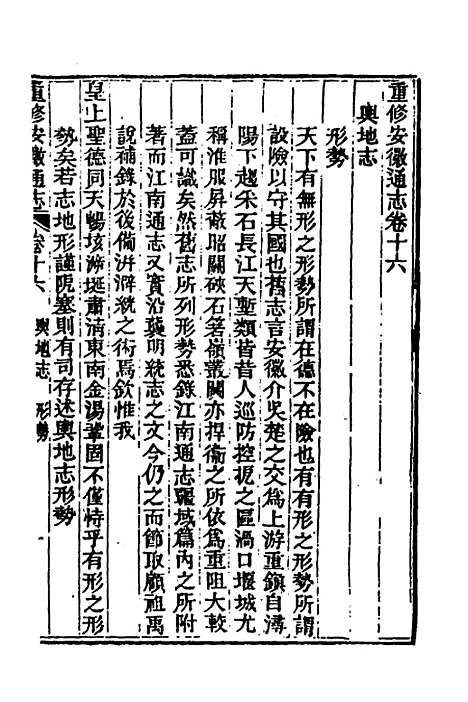 重修安徽通志卷十六
輿地志
形勢
天下有無形之形勢所謂在德不在險也有有形之形勢所謂
設險以守其國也舊志言安徽介吳楚之交爲上游重鎮自潯
陽下趨采石長江天塹類皆昔人巡防控扼之區渦口堰城尤
稱淮服屏蔽昭關硤石箬嶺叢關亦捍衞之所依爲重阻大較
蓋可識矣然舊志所列形勢悉錄江南通志疆域篇內之所附
著而江南通志又實沿襲明統志之文今仍之而節取顧祖禹
說補錄於後備洴澼絖之術焉欽惟我
皇上聖德同天暢垓游埏肅清東南金湯鞏固不僅恃乎有形之形
勢矣若志地形謹阸塞則有司存述輿地志形勢
重修安徽通志 卷十六 輿地志 形勢